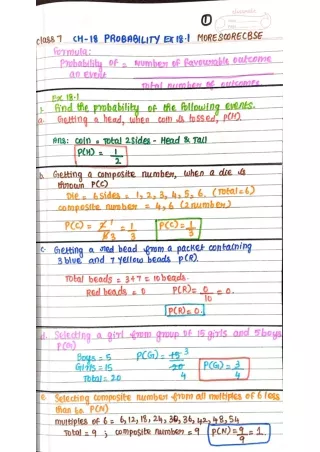 ①
Class 7 CH-18 PROBABILITY EX 18.1 MORESCORECBSE
Formula:
Probability of = Number of favourable outcome
an event
Total number of outcomes
Ex 18.1
1. Find the probability of the following events.
a. Getting a head, when coin is tossed, P(H).
Ans: Coin = Total 2 sides - Head & Tail
P(H) = 1/2
b. Getting a composite number, when a die is
thrown P(C)
Die = 6 sides = 1, 2, 3, 4, 5, 6. (Total = 6)
composite number = 4, 6 (2 number)
P(C) = 2 1/6 3 = 1/3 P(C) = 1/3
c. Getting a red bead from a packet containing
3 blue and 7 yellow beads P(R).
Total beads = 3+7 = 10 beads.
Red beads = 0 P(R) = 0/10 = 0.
P(R) = 0.
d. Selecting a girl from group of 15 girls and 5 boys
P(G)
Boys = 5 P(G) = 15 3/20 4 P(G) = 3/4
Girls = 15
Total = 20
e. Selecting composite number from all multiples of 6 less
than 60 P(N)
multiples of 6 = 6, 12, 18, 24, 30, 36, 42, 48, 54
Total = 9 ; composite number = 9 P(N) = 9/9 = 1